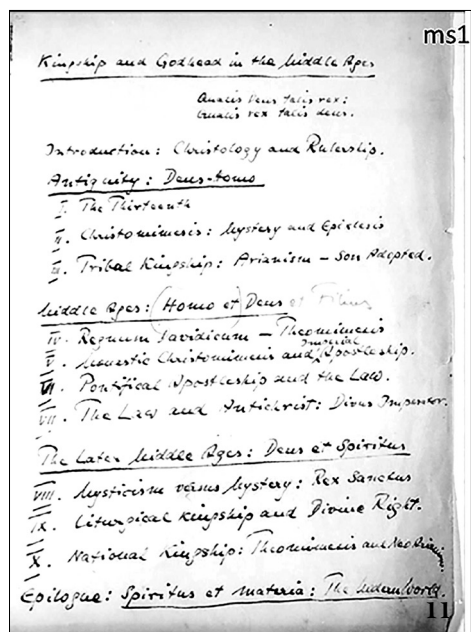 ms1
Kingship and Godhead in the Middle Ages
Qualis Deus talis rex:
Qualis rex talis deus.
Introduction: Christology and Rulership.
Antiquity: Deus-homo
I. The Thirteenth
II. Christomimesis: Mystery and Epiclesis
III. Tribal Kingship: Arianism – Son Adopted.
Middle Ages: (Homo et) Deus et Filius
IV. Regnum Davidicum – Theomimesis
Imperial
V. Monastic Christomimesis and Apostleship.
VI. Pontifical Apostleship and the Law.
VII. The Law and Antichrist: Divus Imperator.
The Later Middle Ages: Deus et Spiritus
VIII. Mysticism versus Mystery: Rex Sanctus
IX. Liturgical Kingship and Divine Right.
X. National Kingship: Theomimesis and Neo
Epilogue: Spiritus et materia: The Modern World.
11